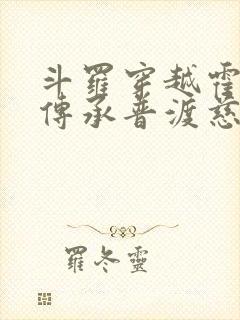 斗羅穿越霍
傳承普渡慈
羅冬靈